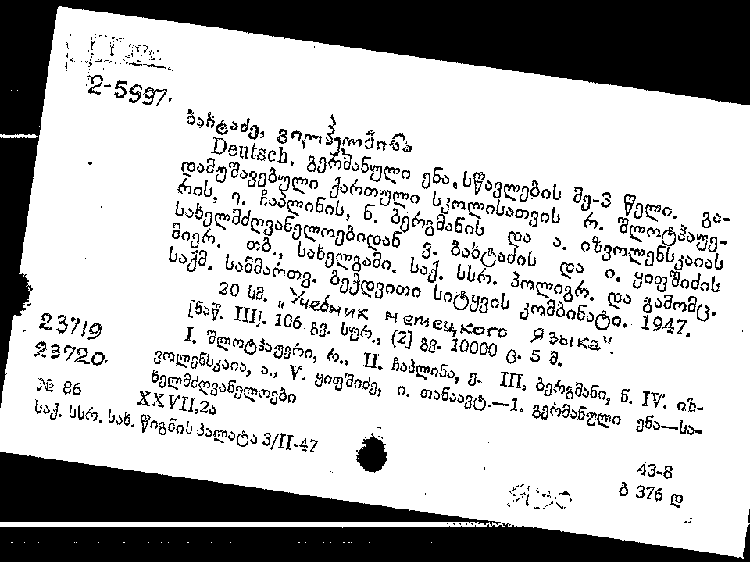 2-5997.
ბახტაძე,
Deutsch. გერმანული ენა. სწავლების მე-3 წელი. გა-
დამუშავებული ქართული სკოლისათვის რ. შლოტჰაუე-
რის, ე. ჩაპლინის, ნ. ბერგმანის და ა. იზვოლენსკაიას
სახელმძღვანელოებიდან ვ. ბახტაძის და ი. ყიფშიძის
მიერ. თბ., სახელგამი. საქ. სსრ. პოლიგრ. და გამომც.
საქმ. სამმართვ. ბეჭდვითი სიტყვის კომბინატი. 1947.
20 სმ. „Учебник немецкого языка".
[ნაწ. III]. 106 გვ. სურ., (2) გვ. 10000 ც. 5 მ.
I. შლოტჰაუერი, რ., II. ჩაპლინა, ე. III. ბერგმანი, ნ. IV. იზ-
ვოლენსკაია, ა., V. ყიფშიძე, ი. თანაავტ.—1. გერმანული ენა—სა-
ხელმძღვანელოები
23719
23720.
№ 86 XXVII,2ა
საქ. სსრ. სახ. წიგნის პალატა 3/II-47
43-8
ბ 376 დ